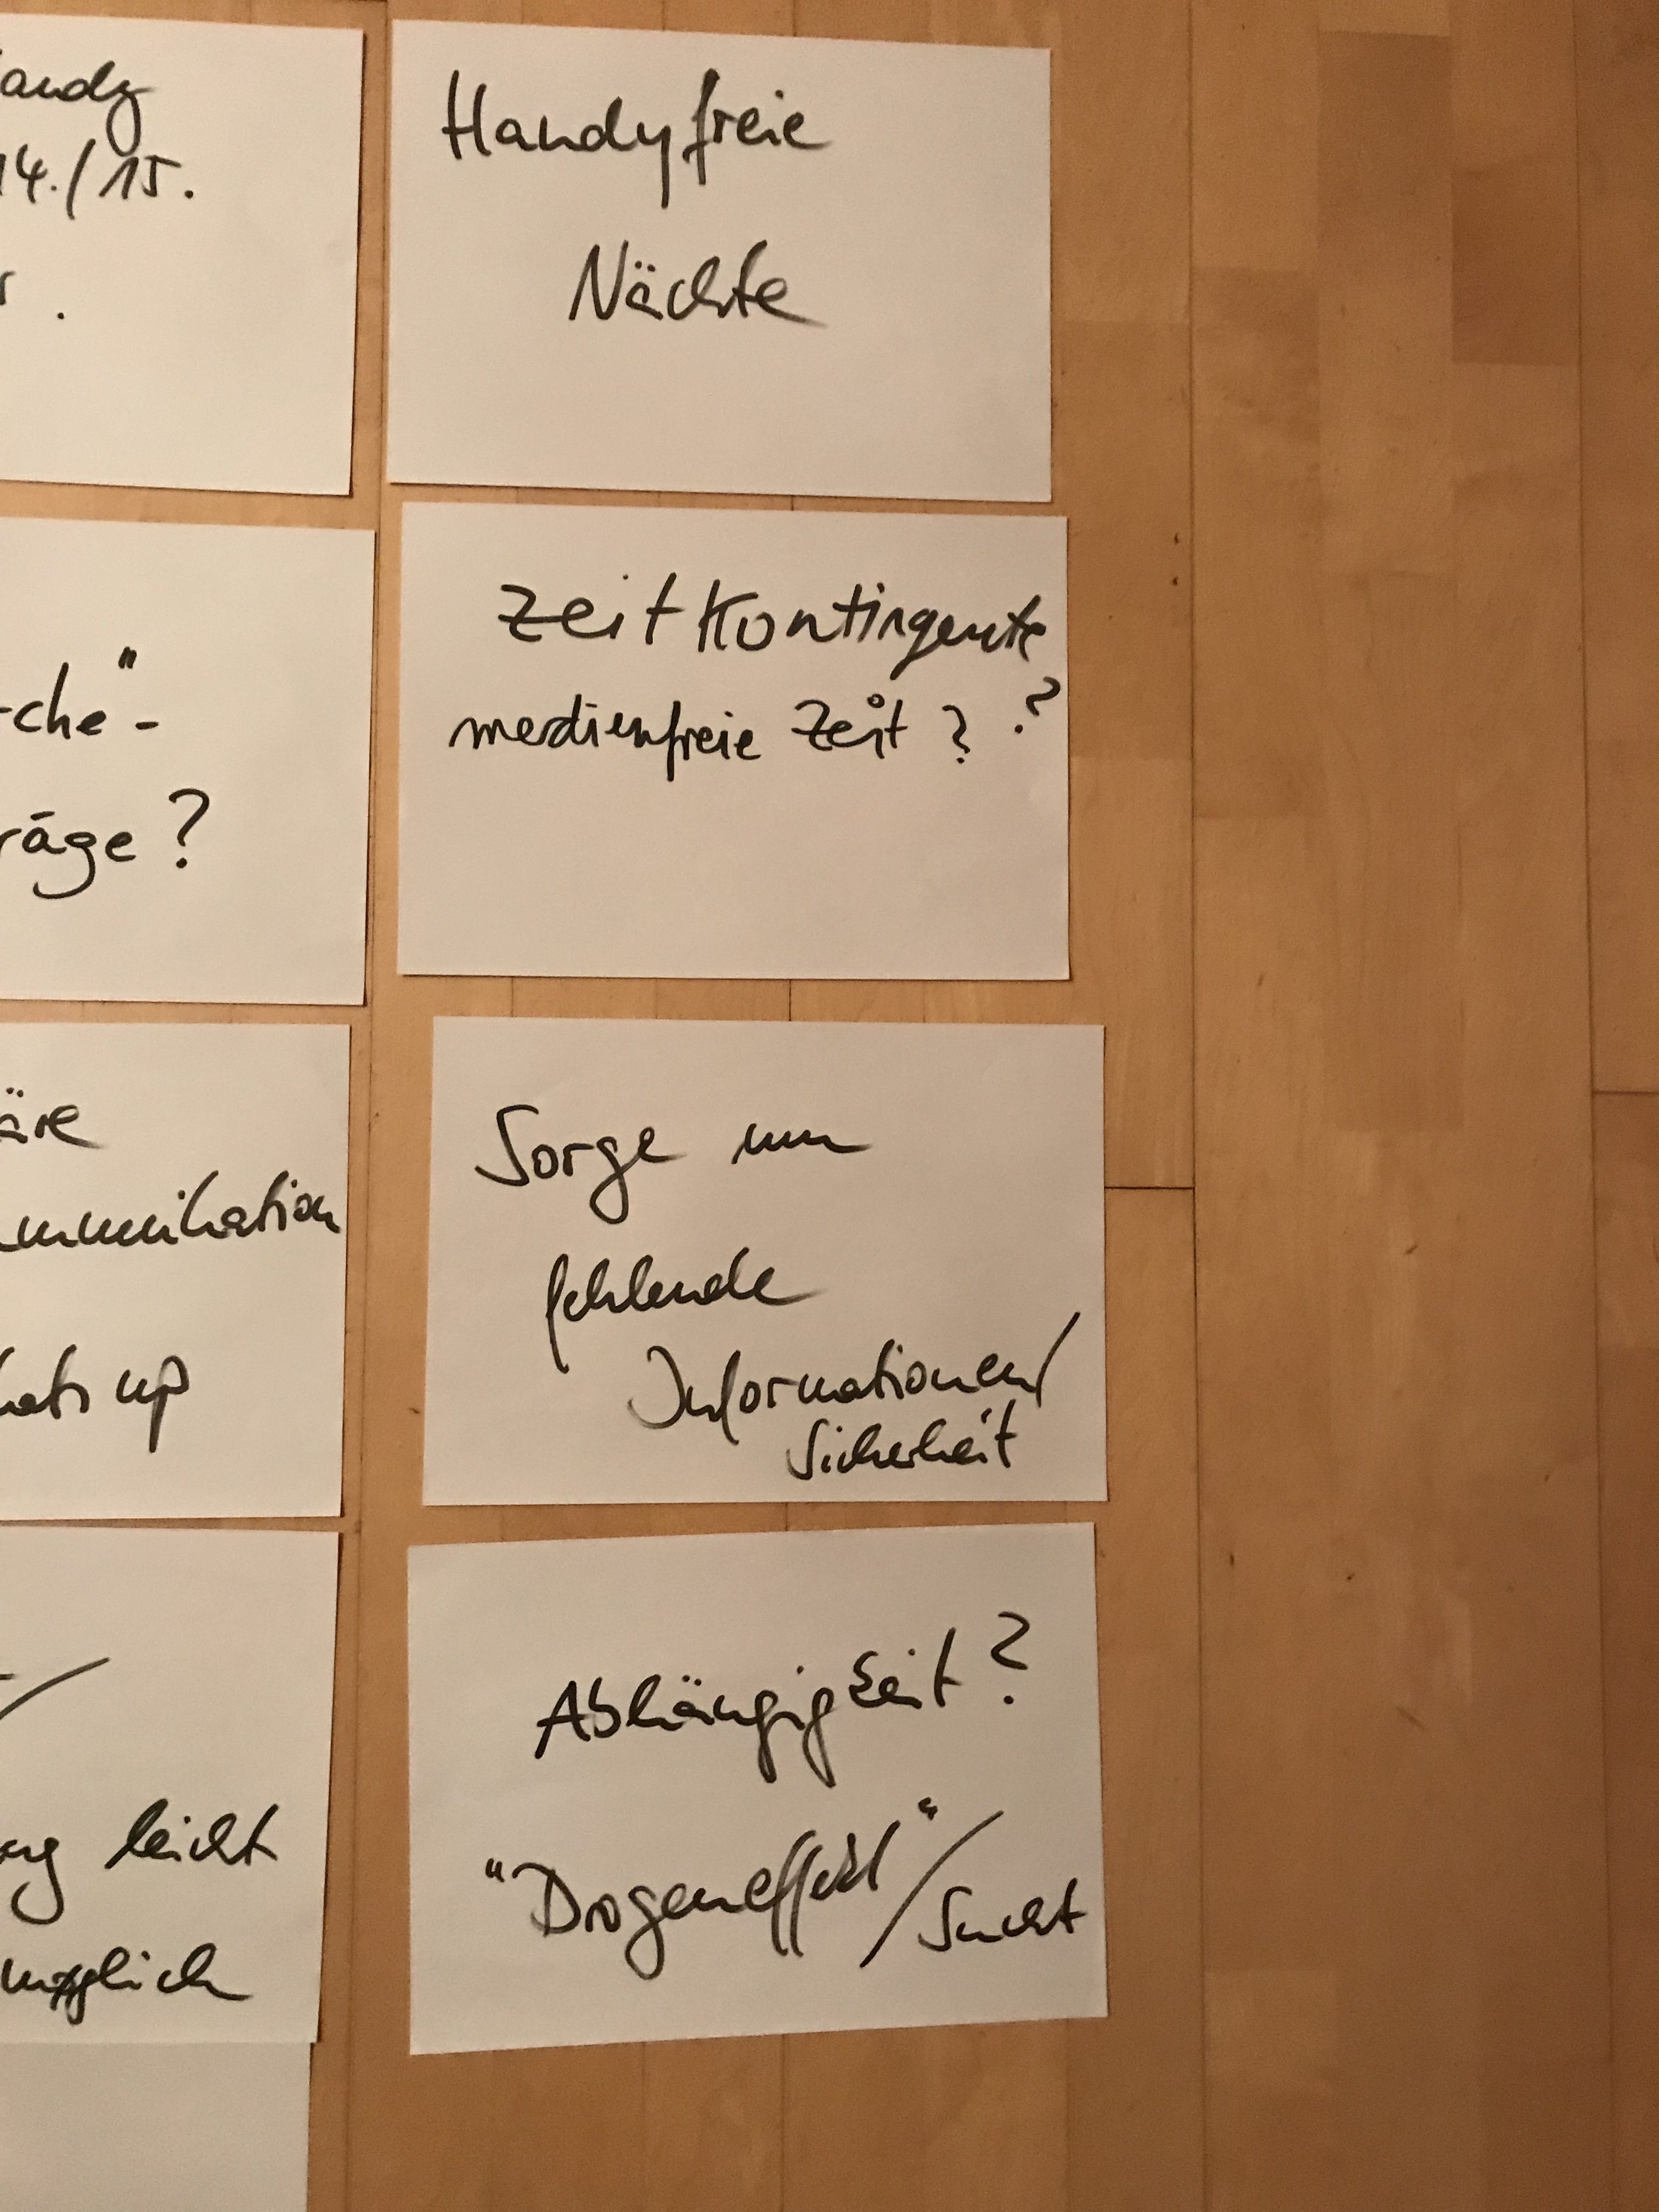 andy
14./15.
.
Handyfreie
Nächte
che"-
räge?
Zeitkontingente
medienfreie Zeit? ?
äre
mmunikation
hats up
Sorge um
fehlende
Informationen/
Sicherheit
/
leicht
möglich
Abhängigkeit?
"Drogeneffekt"/Sucht